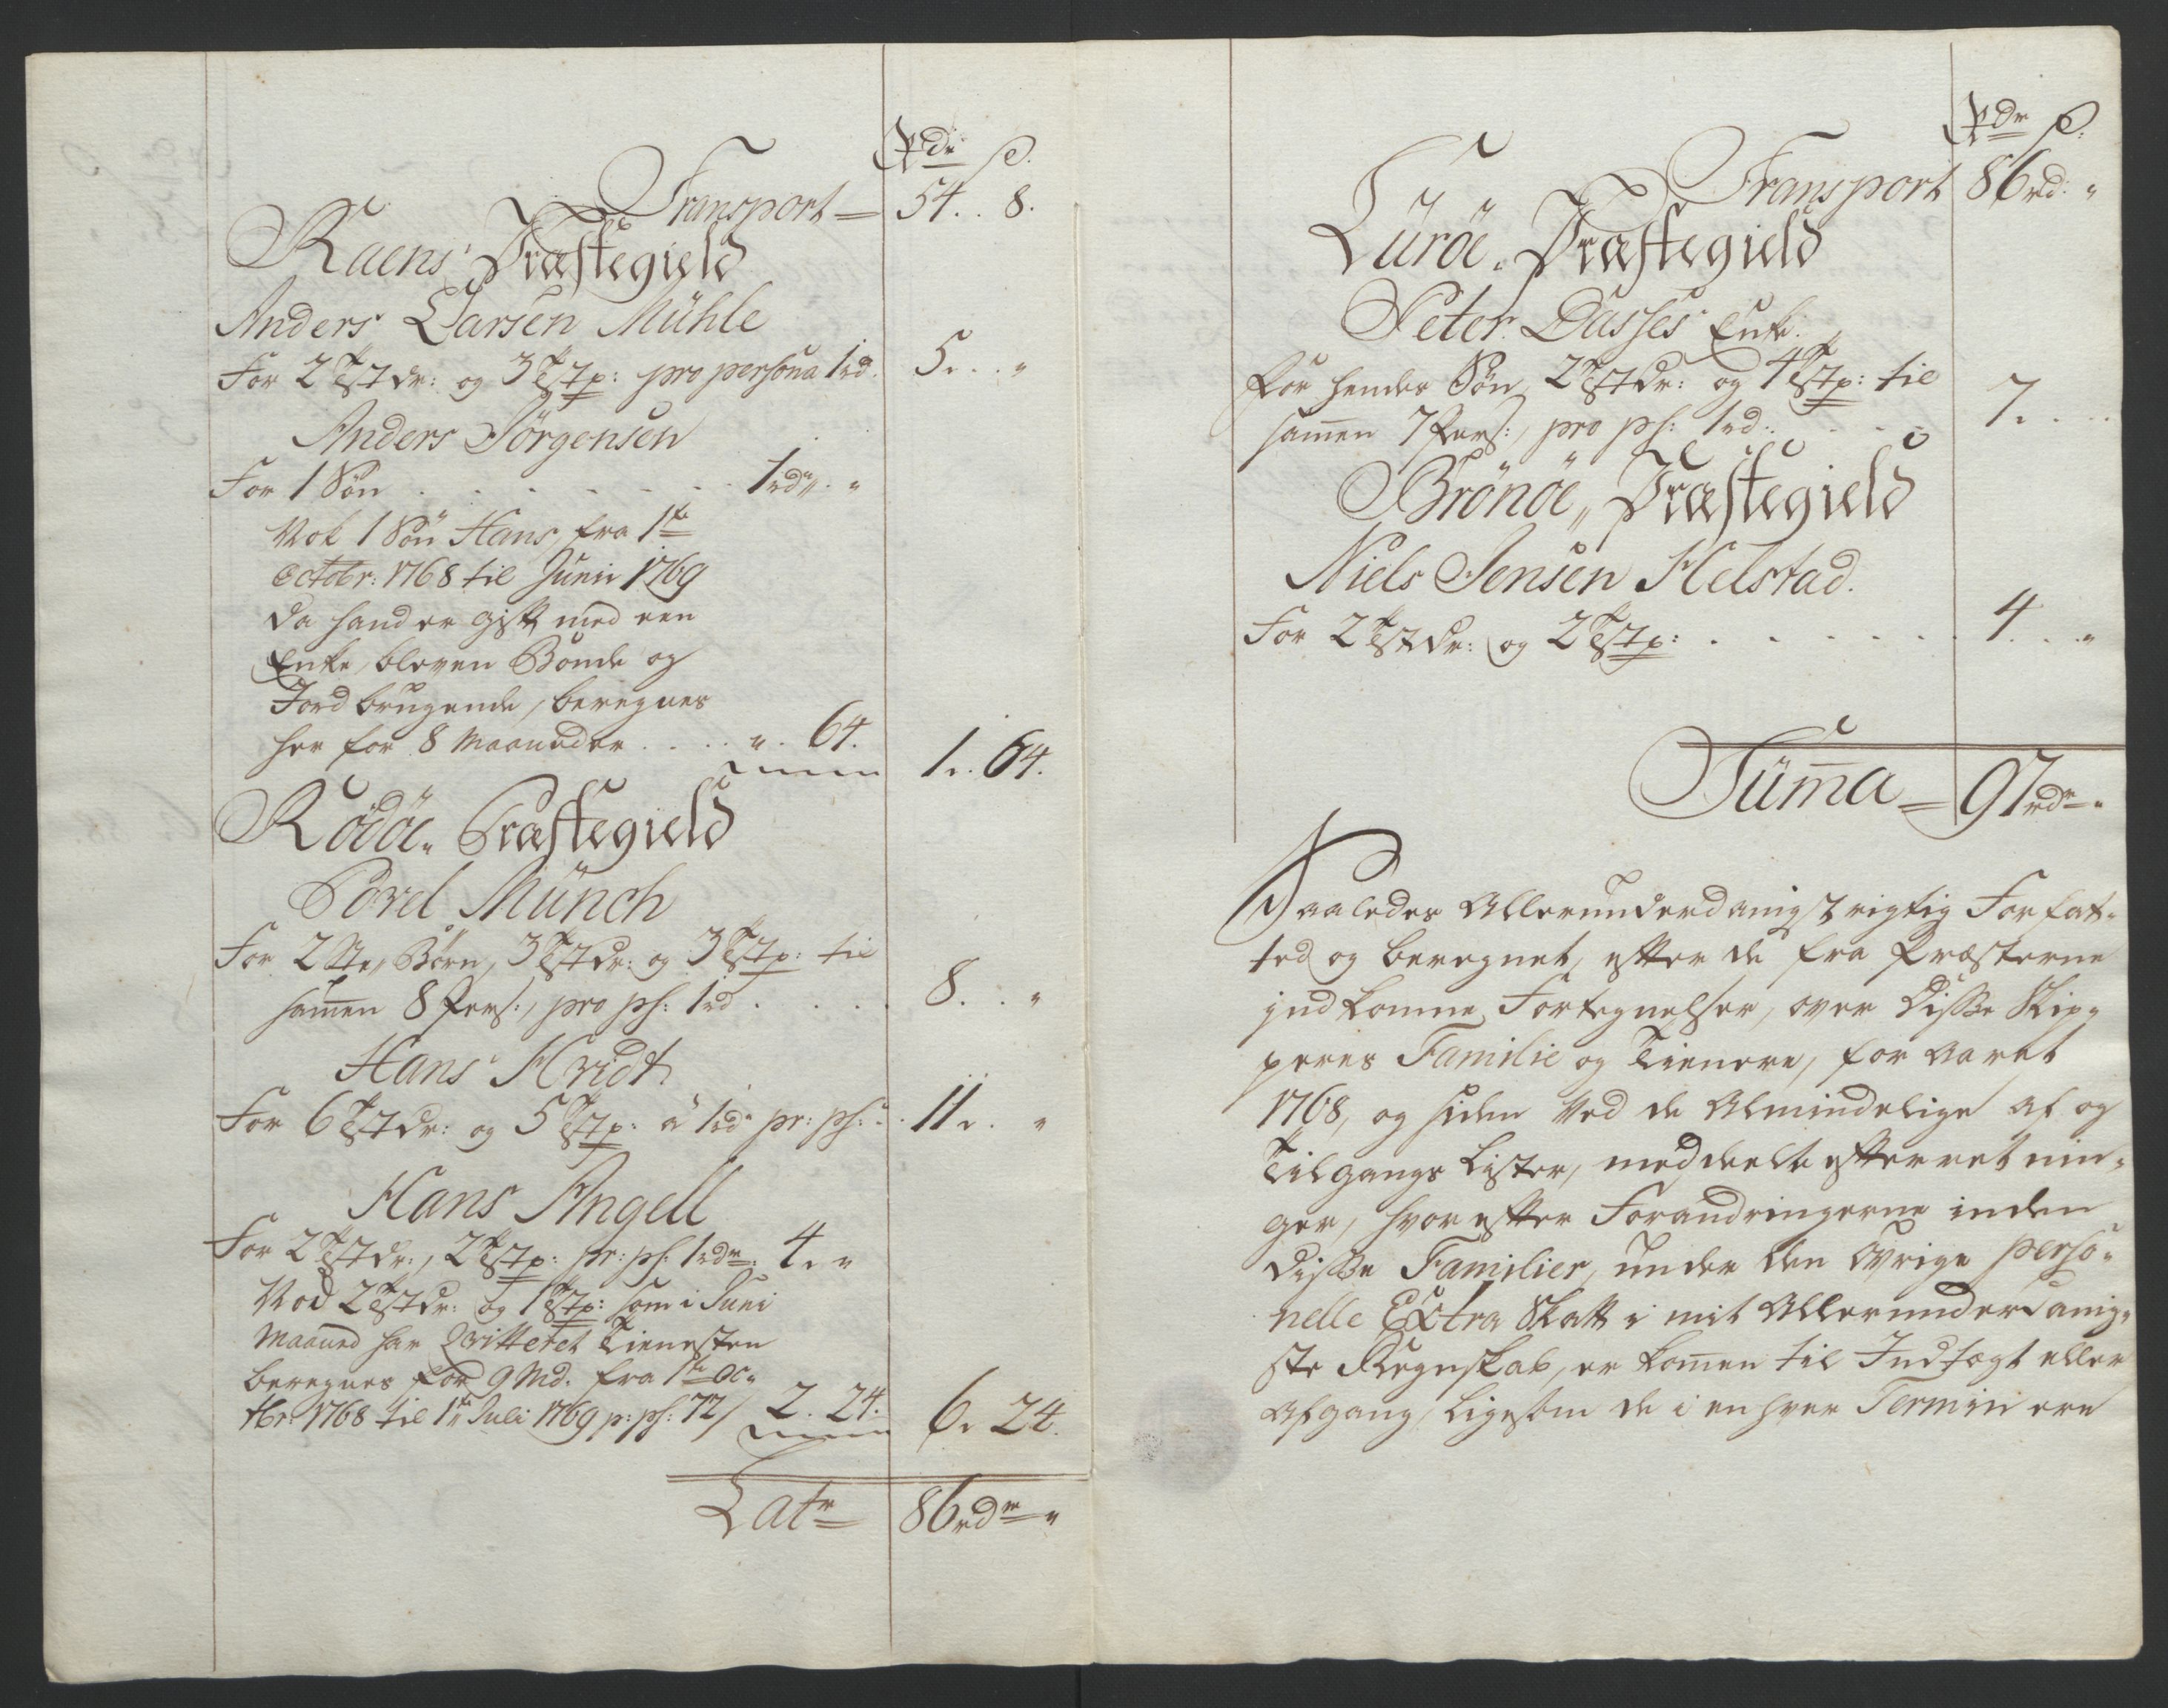 Rdr ß.
Transport = 54 .. 8.
Raens Præstegield
Anders Larsen Mühle
For 2 Tstdr: og 3 Tstp: pro persona 1rd. 5 .. "
Anders Jörgensen
For 1 Søn . . . . . . . 1rdr . "
Nok 1 Søn Hans, fra 1te
Octobr: 1768 til Junii 1769
da hand er gift med een
Enke, bleven Bonde og
Jordbrugende, beregnes
her for 8 Maaneder . . . . ". 64.
1 .. 64.
Rödöe Præstegield
Povel Münch
For 2 Børn, 3 Tstdr: og 3 Tstp: til
sammen 8 Pers:, pro ps: 1rd . . . . 8 . . "
Hans Hvidt
For 6 Tstdr: og 5 Tstp: a 1rdr pr: ps: . . 11 . . "
Hans Angell
For 2 Tstdr:, 2 Tstp: pr: ps: 1rdr: 4 . "
Nod 2 Tstdr: og 1 Tstp: som i Juni
Maaned har Qvitteret Tienesten
beregnes for 9 Md. fra 1te Oc-
tbr: 1768 til 1te Juli 1769 p: ps: 72/ 2 . 24. 6 . 24.
Latr = 86rdr "
Rdr ß.
Transport 86rd: "
Luröe Præstegield
Peter Dasses Enke.
For hendes Søn, 2 Tstdr: og 4 Tstp: til
sammen 7 Pers:, pro ps: 1rd . . . . 7 . . .
Brönöe Præstegield
Niels Jensen Helstad.
For 2 Tstdr: og 2 Tstp: . . . . . . 4 . . "
Summa = 97rdr "
Saaledes Allerunderdanigst rigtig Forfat-
ted og beregnet, efter de fra Præsterne
indkomne Fortegnelser, over disse Skip-
peres Familie og Tienere, for Aaret
1768, og siden Ved de Almindelige Af og
Tilgangs Lister, meddeelte Efterretnin-
ger, hvorefter Forandringerne inden
disse Familier, under den Øvrige Perso-
nelle Extra Skatt i mit Allerunderdanig-
ste Regnskab, er kommen til Indtogt eller
Afgang, Ligesom de i enhver Termin ere